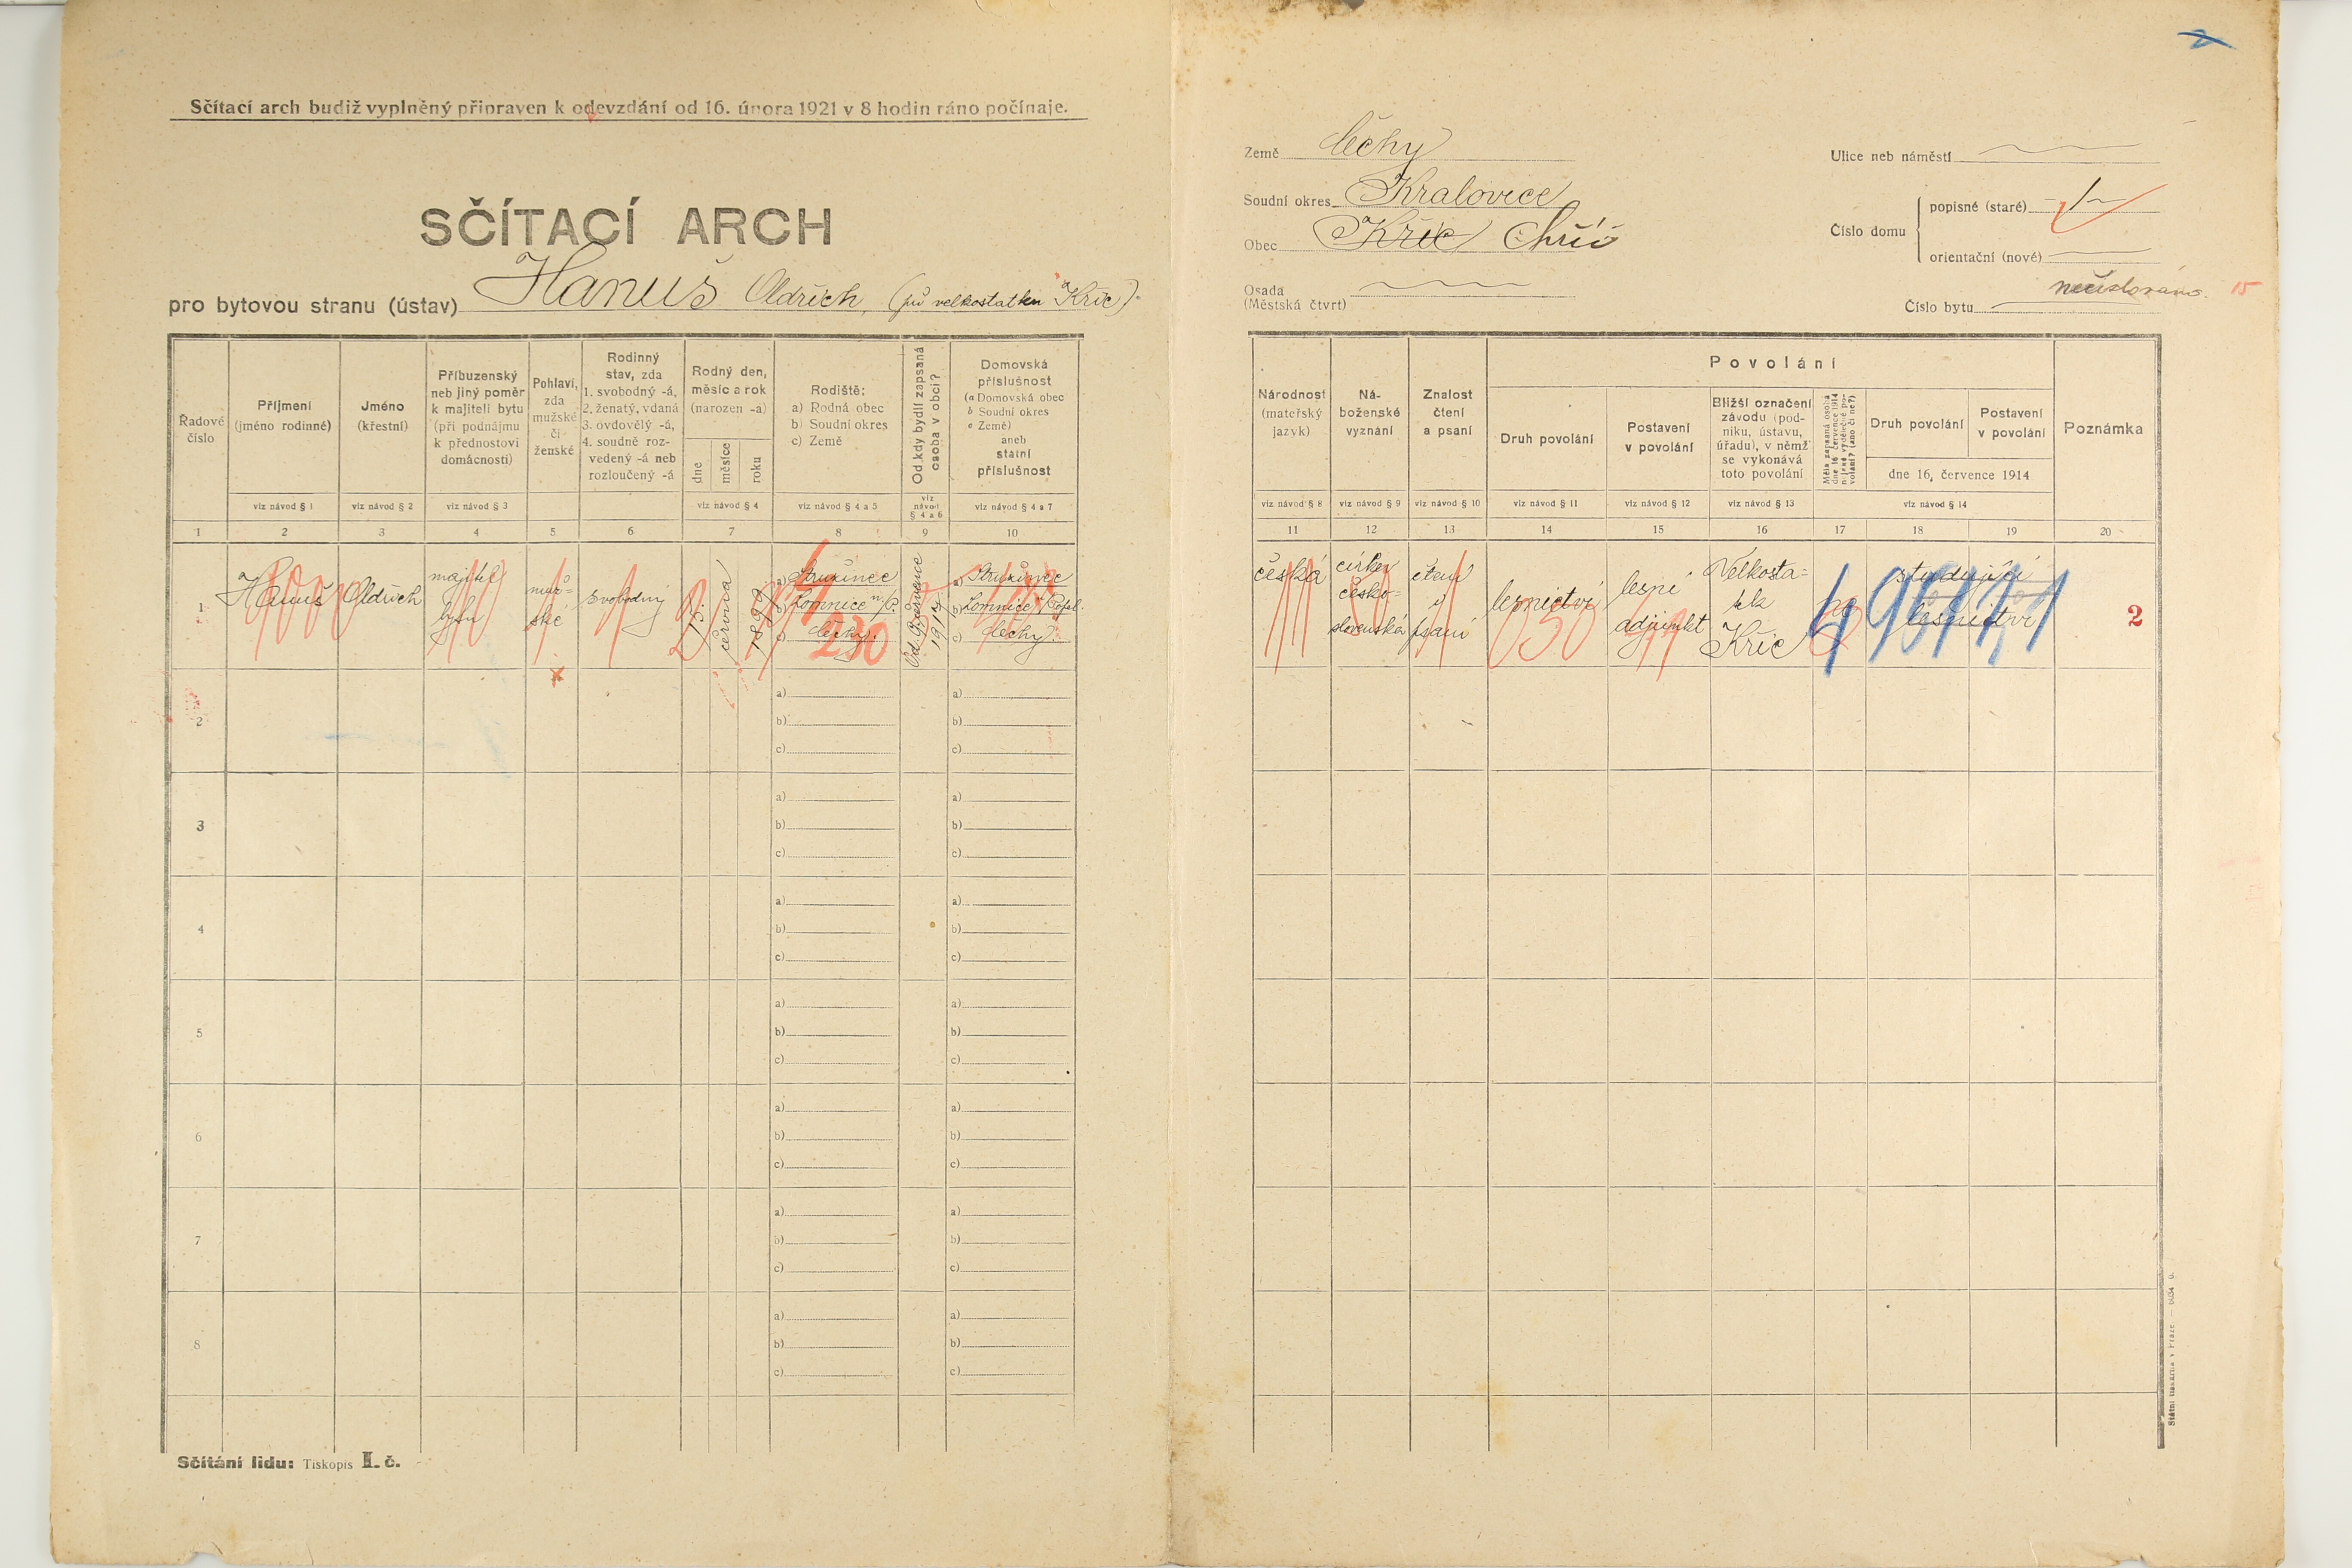 Sčítací arch budiž vyplněný připraven k odevzdání od 16. února 1921 v 8 hodin ráno počínaje.
SČÍTACÍ ARCH
pro bytovou stranu (ústav) Hanuš Oldřich, velkostatku Kříc)
Řadové číslo
Příjmení
(jméno rodinné)
viz návod § 1
Jméno
(křestní)
viz návod § 2
Příbuzenský
neb jiný poměr
k majiteli bytu
(při podnájmu
k přednostovi
domácnosti)
viz návod § 3
Pohlaví,
zda
mužské
či
ženské
Rodinný
stav, zda
1. svobodný -á,
2. ženatý, vdaná
3. ovdovělý -á,
4. soudně roz-
vedený -á neb
rozloučený -á
Rodný den,
měsíc a rok
(narozen -a)
dne
měsíce
roku
viz návod § 4
Rodiště:
a) Rodná obec
b) Soudní okres
c) Země
viz návod § 4 a 5
Od kdy bydlí zapsaná
osoba v obci?
viz
návod
§ 4 a 6
Domovská
příslušnost
(a Domovská obec
b Soudní okres
c Země)
aneb
státní
příslušnost
viz návod § 4 a 7
1 2 3 4 5 6 7 8 9 10
1
Hanuš
Oldřich
majitel
bytu
muž-
ské
svobodný
června
1899
a) Stružinec
b) Lomnice n/P.
c) Čechy.
230
1919
a) Stružinec
b) Lomnice
c) Čechy
2
a)
b)
c)
a)
b)
c)
3
a)
b)
c)
a)
b)
c)
4
a)
b)
c)
a)
b)
c)
5
a)
b)
c)
a)
b)
c)
6
a)
b)
c)
a)
b)
c)
7
a)
b)
c)
a)
b)
c)
8
a)
b)
c)
a)
b)
c)
Sčítání lidu: Tiskopis I. č.
2
Země Čechy
Soudní okres Kralovice
Obec Kříc Chříč
Osada
(Městská čtvrť)
Ulice neb náměstí
Číslo domu
popisné (staré) 1
orientační (nové)
Číslo bytu nečíslováno. 15
Národnost
(mateřský
jazyk)
viz návod § 8
Ná-
boženské
vyznání
viz návod § 9
Znalost
čtení
a psaní
viz návod § 10
Povolání
Druh povolání
viz návod § 11
Postavení
v povolání
viz návod § 12
Bližší označení
závodu (pod-
niku, ústavu,
úřadu), v němž
se vykonává
toto povolání
viz návod § 13
Měla zapsaná osoba
dne 16. července 1914
nějaké výdělečné po-
volání? (ano či ne?)
Druh povolání
Postavení
v povolání
dne 16. července 1914
viz návod § 14
Poznámka
11 12 13 14 15 16 17 18 19 20
česká
církev
česko-
slovenská
čtení
i
psaní
lesnictví
050
lesní
adjunkt
Velkosta-
tek
Kříc
ne
studující
lesnictví
2
Státní tiskárna v Praze.